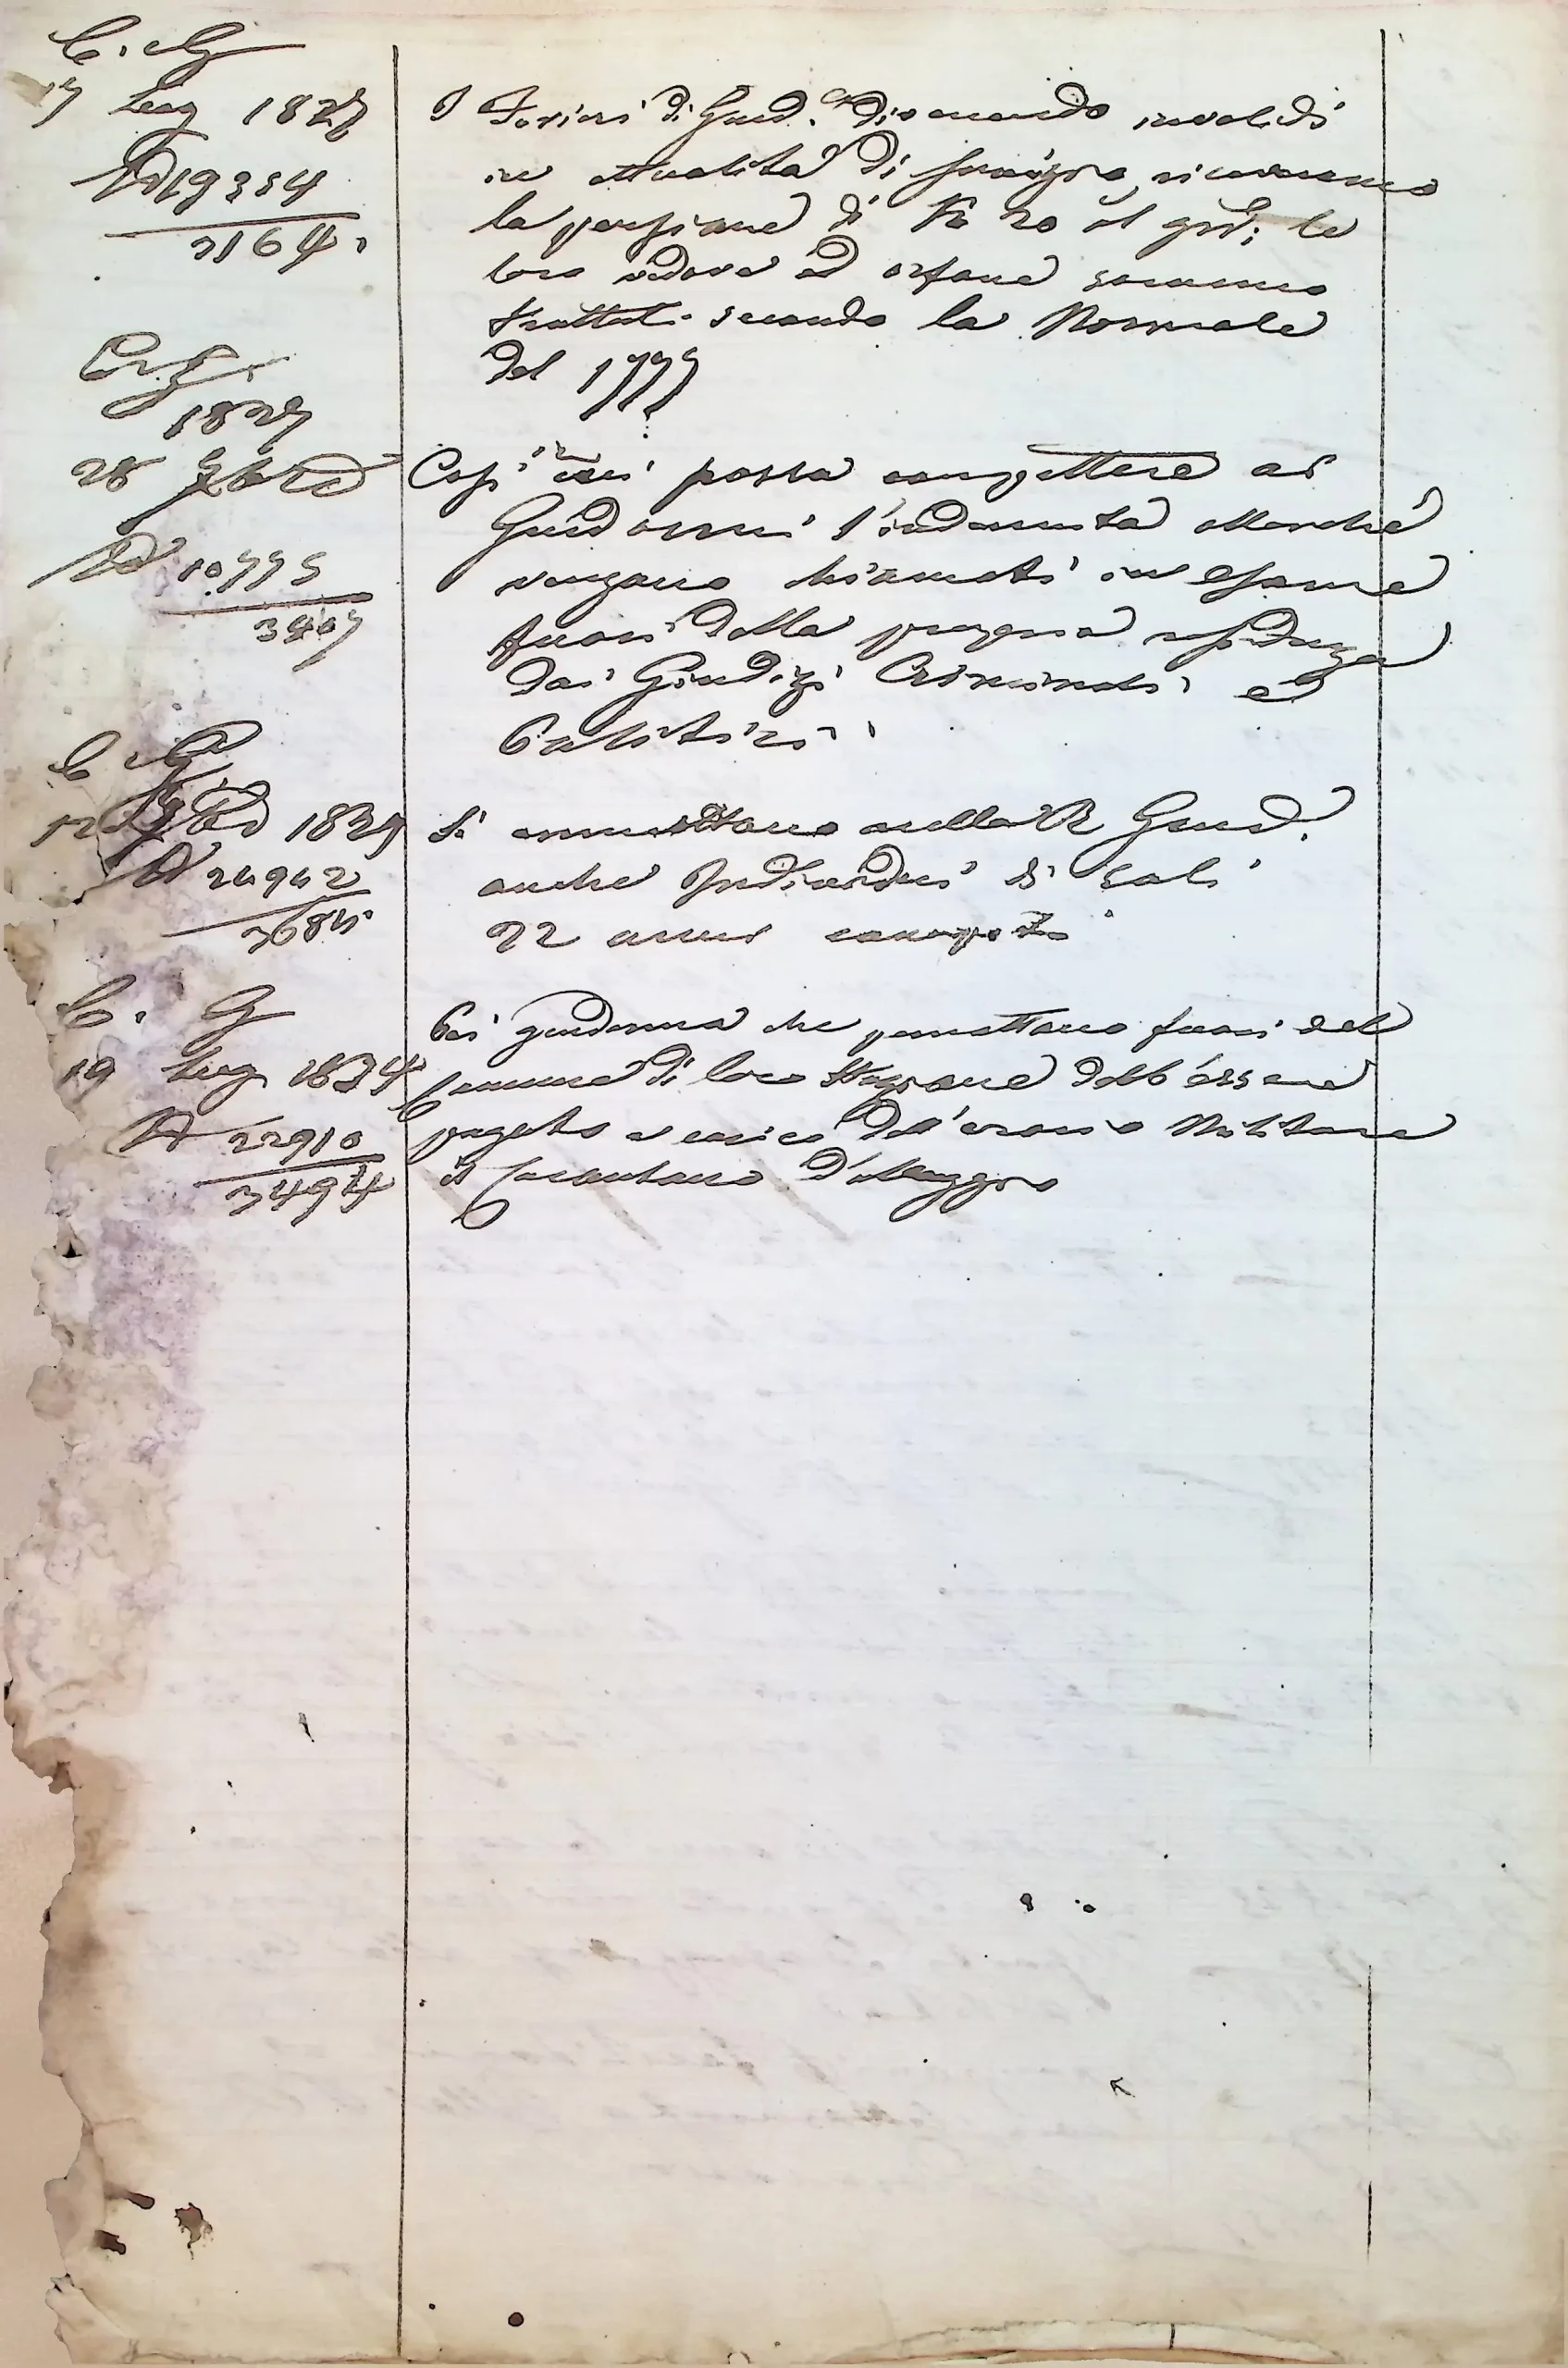 C. G
17 Lug 1827
N 19354
2164.
I Forieri di Gend.a divenendo invalidi
in attualità di servizio riceveranno
la pensione di K 20 al gno; le
loro vedove ed orfane saranno
trattati secondo la Normale
del 1777
C. G.
1829
28 9bre
N 10775
3407
possa competere ai
Gendarmi l'indennità allorché
vengano chiamati in esame
fuori della propria residenza
dai Giudizi Criminali e
Politici.
C G
12 1829
N 24942
3684
Si ammettano nella R Gend.
anche Individui di soli
22 anni compiti
C. G
19 Lug 1834
N 22910
3494
Pei gendarmi che pernottano fuori del
Comune di loro Stazione debb'essere
pagato a carico dell'erario Militare
il Carentano d'alloggio